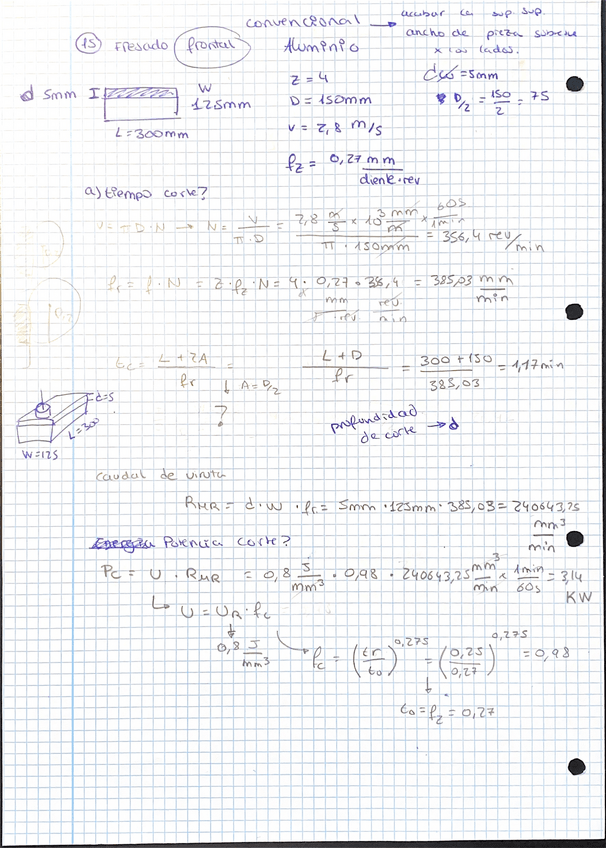 convencional → acabar la sup. sup.
ancho de pieza sobresale
x los lados.
15 Fresado frontal Aluminio
d 5mm I W
125mm
L=300mm
z = 4
D = 150mm
v = 2,8 m/s
fz = 0,27 mm / diente·rev
d = 5mm
D/2 = 150/2 = 75
a) tiempo corte?
v = πD·N → N = V/(π·D) = (2,8 m/s × 10³ mm/m × 60s/1min)/(π·150mm) = 356,4 rev/min
fr = f·N = z·fz·N = 4·0,27·356,4 = 385,03 mm/min
mm/r·rev rev/min
tc = (L+2A)/fr = (L+D)/fr = (300+150)/385,03 = 1,17min
↓ A=D/2
?
profundidad
de corte → d
d=5
L=300
W=125
caudal de viruta
RMR = d·W·fr = 5mm·125mm·385,03 = 240643,75 mm³/min
Energía Potencia corte?
Pc = U·RMR = 0,8 J/mm³·0,98·240643,75 mm³/min × 1min/60s = 3,14 KW
↳ U = UR·fc
↓
0,8 J/mm³
fc = (tr/to)^0,275 = (0,25/0,27)^0,275 = 0,98
↓
to = fz = 0,27